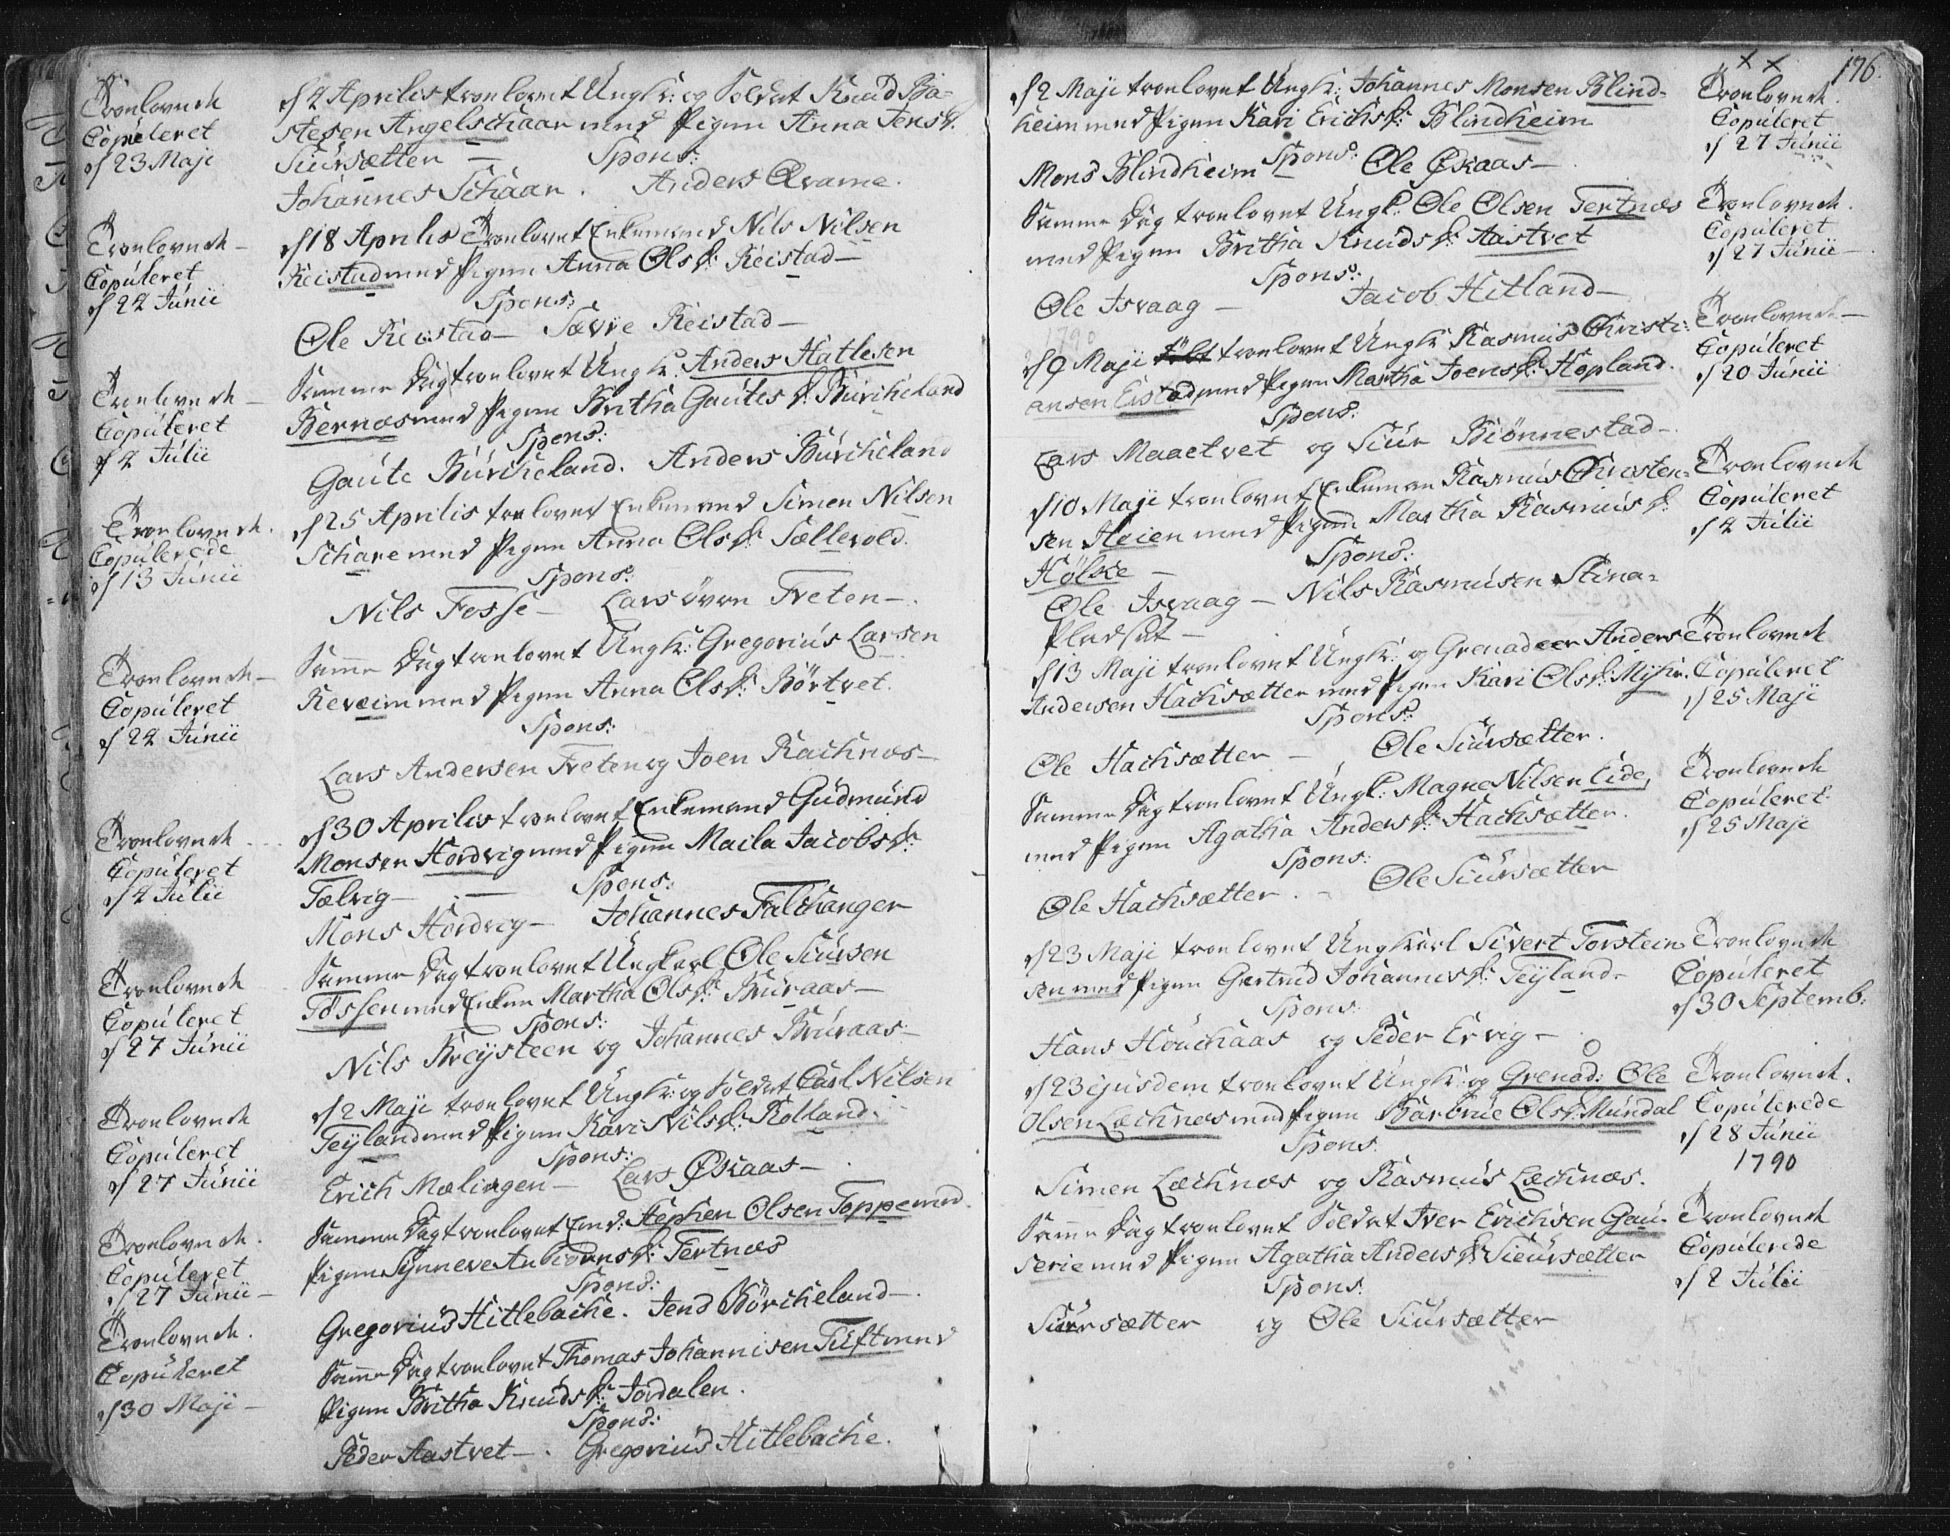 Troelovede
Copuleret
d 23 Maji
d 4 Aprilis troelovet Ungk: og Soldat Knud Ba-
stesen Angelschaar med Pigen Anna Jensd.
Siursætter — Spons:
Johannes Schaar. Anders Qvame.
Troelovede —
Copuleret
d 24 Junii
d 18 Aprilis Troelovet Enkemand Nils Nilsen
Reistad med Pigen Anna Olsd: Reistad —
Spons:
Ole Reistad — Sævie Reistad —
Troelovede —
Copuleret
d 4 Julii
Samme Dag troelovet Ungk: Anders Hatlesen
Bernæs med Pigen Britha Gautesd: Burcheland
Spons:
Gaute Burcheland. Anders Burcheland
Troelovede.
Copulerede
d 13 Junii
d 25 Aprilis troelovet Enkemand Simen Nilsen
Schare med Pigen Anna Olsd: Sællevold.
Spons:
Nils Fosse — Lars övre Treten —.
Troelovede —
Copuleret
d 24 Junii
Samme Dag troelovet Ungk: Gregorius Larsen
Reveim med Pigen Anna Olsd: Börtvet.
Spons:
Lars Andersen Treten og Joen Rachnæs —
Troelovede
Copuleret
d 4 Julii
d 30 Aprilis troelovet Enkemand Gudmund
Monsen Hordvig med Pigen Maila Jacobsd:
Tælvig — Spons:
Mons Hordvig — Johannes Falchanger
Troelovede
Copuleret
d 27 Junii
Samme Dag troelovet Ungkarl Ole Siursen
Fossen med Enken Martha Olsd: Bruraas —
Spons:
Nils Breysteen og Johannes Bruraas —
Troelovede
Copuleret
d 27 Junii
d 2 Maji troelovet Ungk: og Soldat Carl Nilsen
Teyland med Pigen Kari Nilsd: Rolland.
Spons:
Erich Mælingen — Lars Øskaas —.
Troelovede.
Copuleret
d 27 Junii —
Samme Dag troelovet Emd: Stephen Olsen Toppe med
Pigen Synneve Anbiørnsd: Tertnæs
Spons:
Gregorius Hitlebache. Jens Börcheland —.
Troelovede.
Copuleret
d 30 Maji —
Samme Dag troelovet Thomas Johannisen Tuft med
Pigen Britha Knudsd: Jordalen.
Spons:
Peder Aastvet —. Gregorius Hitlebache.
176.
d 2 Maji troelovet Ungk: Johannes Monsen Blind-
heim med Pigen Kari Erichsd: Blindheim
Spons:
Mons Blindheim Ole Øskaas —
Troelovede.
Copuleret
d 27 Junii
Samme Dag troelovet Ungk: Ole Olsen Tertnæs
med Pigen Britha Knudsd: Aastvet
Spons:
Ole Isvaag — Jacob Hitland —
Troelovede.
Copuleret
d 27 Junii —
1790
d 9 Maji troelovet Ungk: Rasmus Christi-
ansen Eistad med Pigen Martha Joensd: Hopland.
Spons:
Lars Maaetvet og Siur Biønnestad —
Troelovede —
Copuleret
d 20 Junii
d 10 Maji troelovet Enkeman Rasmus Christen-
sen Høien med Pigen Martha Rasmusd:
Hølse — Spons:
Ole Isvaag — Nils Rasmusen Stina-
Pladset —
Troelovede
Copuleret
d 4 Julii
d 13 Maji troelovet Ungk: og Grenadeer Anders
Andersen Hachsætter med Pigen Kari Olsd: Mijhr.
Spons:
Ole Hachsætter — Ole Siursætter.
Troelovede
Copuleret
d 25 Maji
Samme Dag troelovet Ungk: Magne Nilsen Eide,
med Pigen Agatha Andersd: Hachsætter.
Spons:
Ole Hachsætter. — Ole Siursætter
Troelovede
Copuleret
d 25 Maji
d 23 Maji troelovet Ungkarl Sivert Torstein-
sen med Pigen Gertrud Johannisd: Teyland —
Spons:
Hans Houchaas og Peder Ervig —
Troelovede
Copuleret
d 30 Septemb:
d 23 ejusdem troelovet Ungk: og Grenad: Ole
Olsen Læchnæs med Pigen Barbrue Olsd: Mundal
Spons.
Simen Læchnæs og Rasmus Læchnæs.
Troelovede.
Copulerede
d 28 Junii
1790
Samme Dag troelovet Soldat Iver Erichsen Gau-
serie med Pigen Agatha Andersd: Sieursætter
Spons:
Siursætter og Ole Siursætter
Troelovede
Copulerede
d 2 Julii